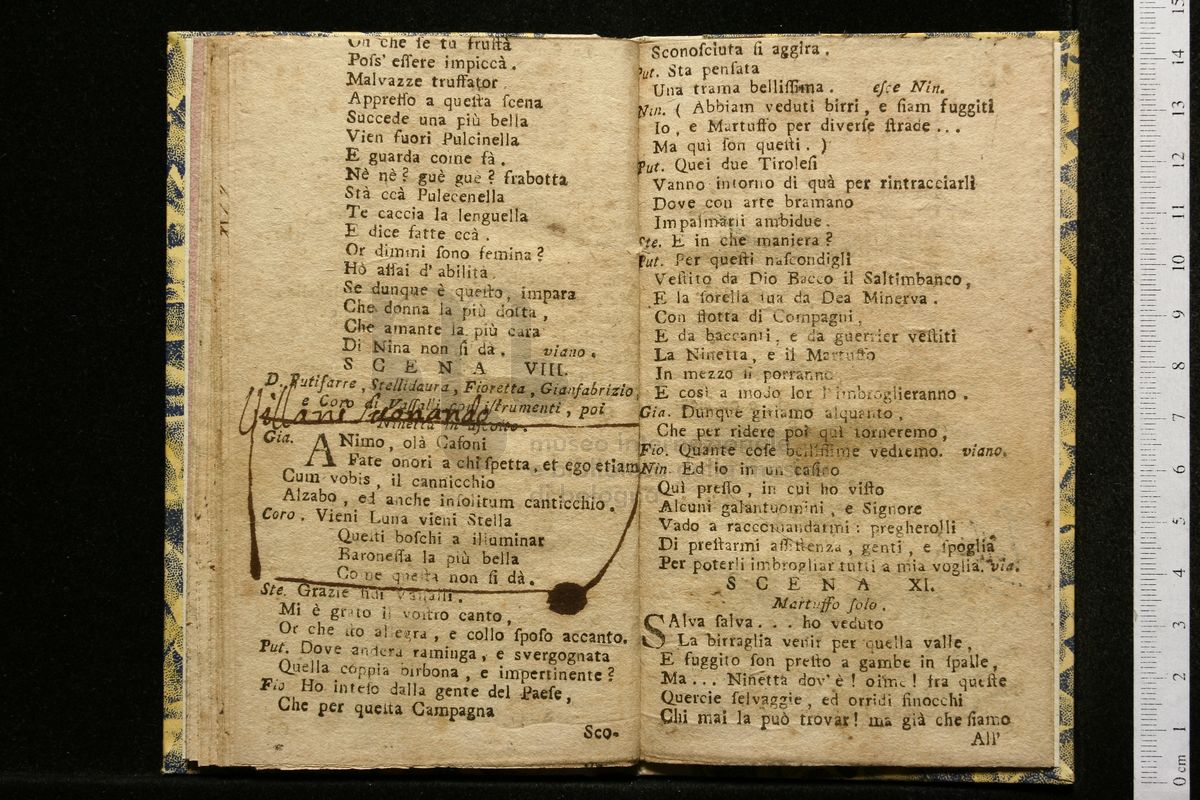 Oh che se tu frustà
Poss' essere impiccà.
Malvazze truffator
Appresso a questa scena
Succede una più bella
Vien fuori Pulcinella
E guarda come fà.
Nè nè? guè guè? frabotta
Stà ccà Pulecenella
Te caccia la lenguella
E dice fatte ccà.
Or dimmi sono femina?
Hò assai d' abilità.
Se dunque è questo, impara
Che donna la più dotta,
Che amante la più cara
Di Nina non si dà. viano.
SCENA VIII.
D. Putifarre, Stellidaura, Fioretta, Gianfabrizio
e Coro di Vassalli con istrumenti, poi
Villani suonando
Ninetta in ascolto.
Gia. ANimo, olà Casoni
Fate onori a chi spetta, et ego etiam
Cum vobis, il cannicchio
Alzabo, ed anche insolitum canticchio.
Coro. Vieni Luna vieni Stella
Questi boschi a illuminar
Baronessa la più bella
Come questa non si dà.
Ste. Grazie fidi Vassalli.
Mi è grato il vostro canto,
Or che sto allegra, e collo sposo accanto.
Put. Dove anderà raminga, e svergognata
Quella coppia birbona, e impertinente?
Fio Ho inteso dalla gente del Paese,
Che per questa Campagna
Sco-
Sconosciuta si aggira.
Put. Sta pensata
Una trama bellissima. esce Nin.
Nin. ( Abbiam veduti birri, e siam fuggiti
Io, e Martuffo per diverse strade...
Ma quì son questi. )
Put. Quei due Tirolesi
Vanno intorno di quà per rintracciarli
Dove con arte bramano
Impalmarii ambidue.
Ste. E in che maniera?
Put. Per questi nascondigli
Vestito da Dio Bacco il Saltimbanco,
E la sorella sua da Dea Minerva.
Con flotta di Compagni,
E da baccanti, e da guerrier vestiti
La Ninetta, e il Martuffo
In mezzo si porranno
E così a modo lor l'imbroglieranno.
Gia. Dunque giriamo alquanto,
Che per ridere poi quì torneremo,
Fio. Quante cose bellissime vedremo. viano.
Nin. Ed io in un casino
Quì presso, in cui ho visto
Alcuni galantuomini, e Signore
Vado a raccomandarmi: pregherolli
Di prestarmi assistenza, genti, e spoglia
Per poterli imbrogliar tutti a mia voglia. via.
SCENA XI.
Martuffo solo.
SAlva salva... ho veduto
La birraglia venir per quella valle,
E fuggito son presto a gambe in spalle,
Ma... Ninetta dov'è! oime! fra queste
Quercie selvaggie, ed orridi finocchi
Chi mai la può trovar! ma già che siamo
All'